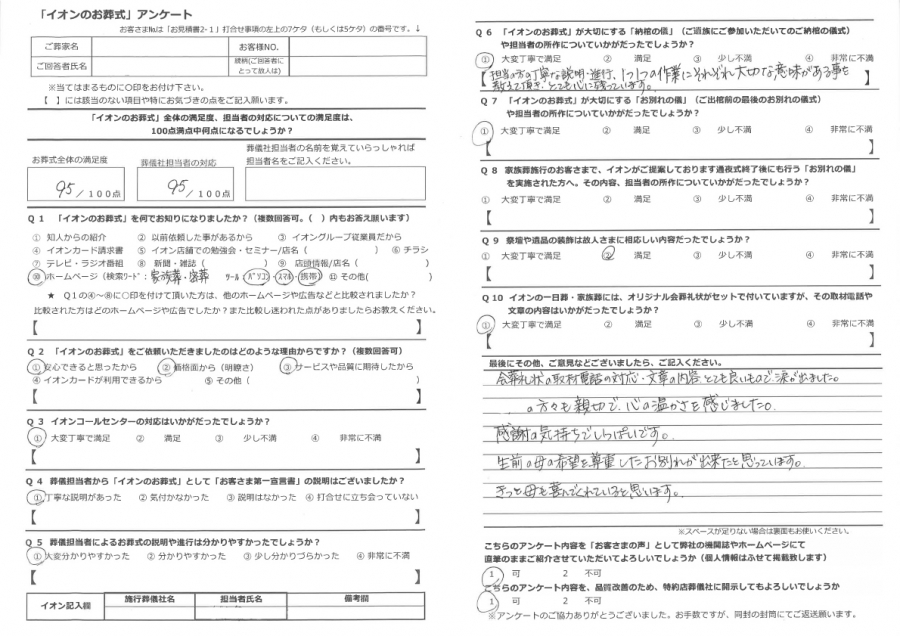 「イオンのお葬式」アンケート
お客さま№は「お見積書2-1」打合せ事項の左上の7ケタ（もしくは5ケタ）の番号です。↓
ご葬家名
お客様NO.
ご回答者氏名
続柄(ご回答者にとって故人は)
※当てはまるものに〇印をお付け下さい。
【　】には該当のない項目や特にお気づきの点をご記入願います。
「イオンのお葬式」全体の満足度、担当者の対応についての満足度は、
100点満点中何点になるでしょうか？
お葬式全体の満足度
葬儀社担当者の対応
葬儀社担当者の名前を覚えていらっしゃれば
担当者名をご記入ください。
95／100点
95／100点
Q１　「イオンのお葬式」を何でお知りになりましたか？（複数回答可。（　）内もお答え願います）
① 知人からの紹介　② 以前依頼した事があるから　③ イオングループ従業員だから
④ イオンカード請求書　⑤ イオン店舗での勉強会・セミナー/店名（　）⑥ チラシ
⑦ テレビ・ラジオ番組　⑧ 新聞・雑誌（　）⑨ 店頭情報/店名（　）
⑩ ホームページ（検索ﾜｰﾄﾞ：家族葬・密葬　ﾂｰﾙ：パソコン・スマホ・携帯）⑪ その他(　)
★ Q１の④～⑧に〇印を付けて頂いた方は、他のホームページや広告などと比較されましたか？
比較された方はどのホームページや広告でしたか？また比較し迷われた点がありましたらお教えください。
【　】
Q２　「イオンのお葬式」をご依頼いただきましたのはどのような理由からですか？（複数回答可）
① 安心できると思ったから　② 価格面から（明瞭さ）　③ サービスや品質に期待したから
④ イオンカードが利用できるから　⑤ その他（　）
【　】
Q３　イオンコールセンターの対応はいかがだったでしょうか？
① 大変丁寧で満足　② 満足　③ 少し不満　④ 非常に不満
【　】
Q４　葬儀担当者から「イオンのお葬式」として「お客さま第一宣言書」の説明はございましたか？
① 丁寧な説明があった　② 気付かなかった　③ 説明はなかった　④ 打合せに立ち会っていない
【　】
Q５　葬儀担当者によるお葬式の説明や進行は分かりやすかったでしょうか？
① 大変分かりやすかった　② 分かりやすかった　③ 少し分かりづらかった　④ 非常に不満
【　】
イオン記入欄
施行葬儀社名
担当者氏名
備考欄
Q６　「イオンのお葬式」が大切にする「納棺の儀」（ご遺族にご参加いただいてのご納棺の儀式）
や担当者の所作についていかがだったでしょうか？
① 大変丁寧で満足　② 満足　③ 少し不満　④ 非常に不満
【担当の方の丁寧な説明・進行、1つ1つの作業にそれぞれ大切な意味がある事を
教えて頂き、とても心に残っています。】
Q７　「イオンのお葬式」が大切にする「お別れの儀」（ご出棺前の最後のお別れの儀式）
や担当者の所作についていかがだったでしょうか？
① 大変丁寧で満足　② 満足　③ 少し不満　④ 非常に不満
【　】
Q８　家族葬施行のお客さまで、イオンがご提案しております通夜式終了後にも行う「お別れの儀」
を実施された方へ。その内容、担当者の所作についていかがだったでしょうか？
① 大変丁寧で満足　② 満足　③ 少し不満　④ 非常に不満
【　】
Q９　祭壇や遺品の装飾は故人さまに相応しい内容だったでしょうか？
① 大変丁寧で満足　② 満足　③ 少し不満　④ 非常に不満
【　】
Q10　イオンの一日葬・家族葬には、オリジナル会葬礼状がセットで付いていますが、その取材電話や
文章の内容はいかがだったでしょうか？
① 大変丁寧で満足　② 満足　③ 少し不満　④ 非常に不満
【　】
最後にその他、ご意見などございましたら、ご記入ください。
会葬礼状の取材電話の対応・文章の内容、とても良いもので涙が出ました。
の方々も親切で、心の温かさを感じました。
感謝の気持ちでいっぱいです。
生前の母の希望を尊重したお別れが出来たと思っています。
きっと母も喜んでくれていると思います。
※スペースが足りない場合は裏面もお使いください。
こちらのアンケート内容を「お客さまの声」として弊社の機関誌やホームページにて
直筆のままご紹介させていただいてよろしいでしょうか（個人情報はふせて掲載致します）
1　可　2　不可
こちらのアンケート内容を、品質改善のため、特約店葬儀社に開示してもよろしいでしょうか
1　可　2　不可
※アンケートのご協力ありがとうございました。お手数ですが、同封の封筒にてご返送願います。